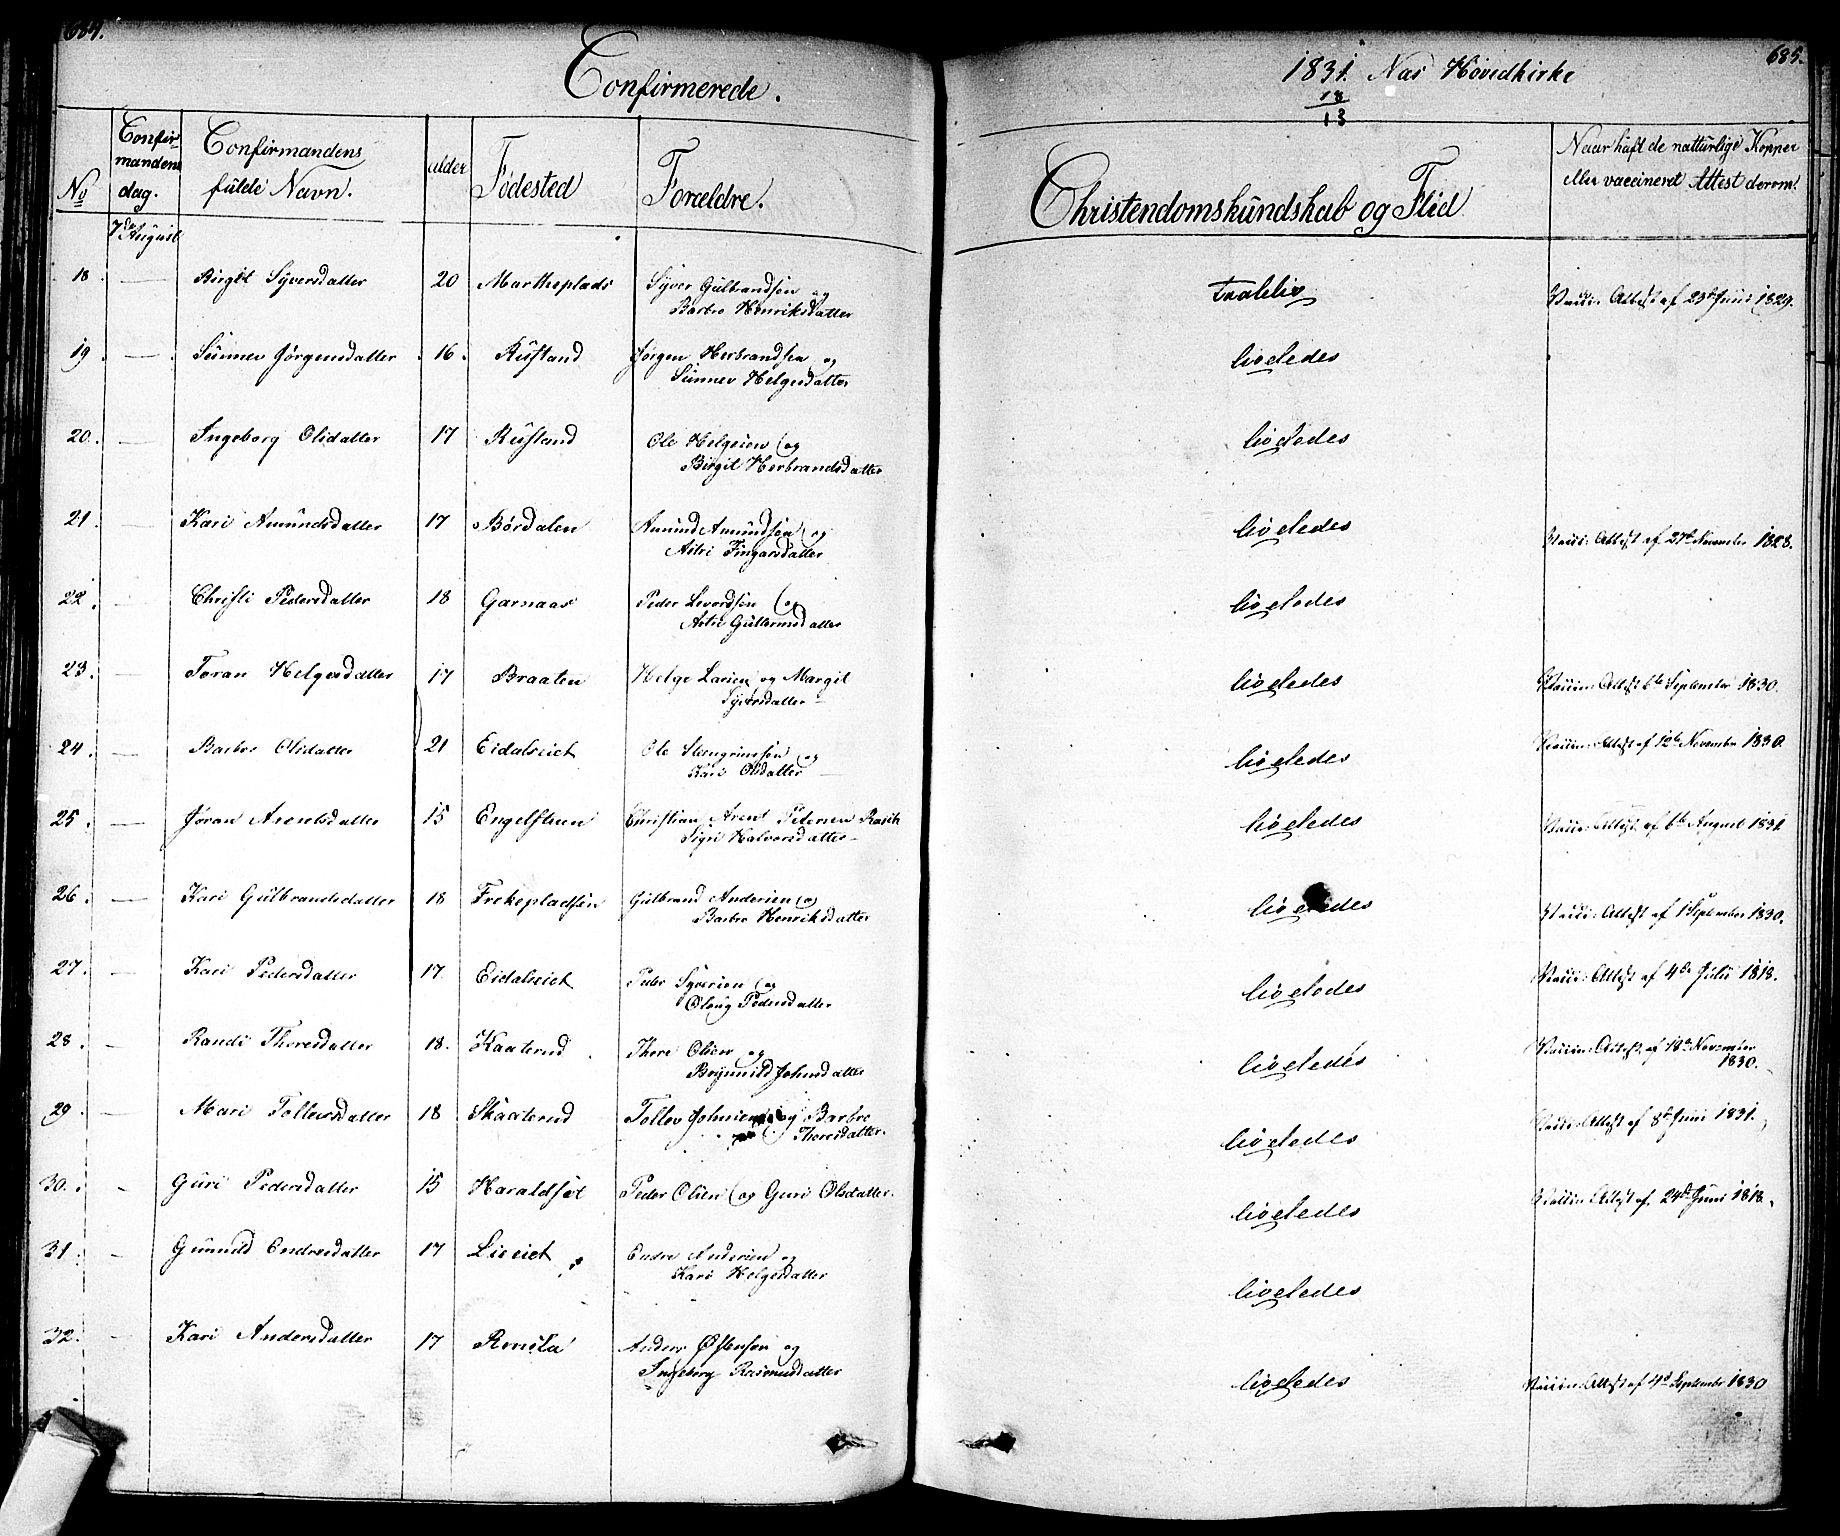 684.
Confirmerede.
1831. Næs Hovedkirke
685.
18
13
No
Confir-
mandens
dag.
Confirmandens
fulde Navn.
alder
Fødested
Forældre.
Christendomskundskab og Flid
Naar haft de naturlige Kopper
eller vaccineret Attest derom.
7de August
18 — Birgit Syversdatter 20 Martheplads Syver Gulbrandsen og taalelig Vacci: Attest af 23de Juni 1829.
Barbro Henriksdatter
19. — Sünnev Jørgensdatter 16. Rustand Jørgen Herbrandsen og ligeledes
Sünnev Helgesdatter
20. — Ingeborg Olsdatter 17 Rustand Ole Helgesen og ligeledes
Birgit Herbrandsdatter
21. — Kari Amundsdatter 17 Børdalen Amund Amundsen og ligeledes Vacci: Attest af 27de November 1828.
Astri Fingarsdatter
22. — Christi Pedersdatter 18 Garnaas Peder Levordsen og ligeledes
Astri Guttormsdatter
23. — Joran Helgesdatter 17 Braaten Helge Larsen og Margit ligeledes Vaccin: Attest 6te September 1830.
Syversdatter
24. — Barbro Olsdatter 21 Eidalseiet Ole Steengrimsen og ligeledes Vaccin: Attest af 12te November 1830.
Kari Olsdatter
25. — Jøran Arentsdatter 15 Engelsteen Christian Arent Petersen Rasch ligeledes Vacci: Attest af 6te August 1831
Sigri Halvorsdatter
26. — Kari Gulbrandsdatter 18 Frekepladsen Gulbrand Andersen og ligeledes Vacci: Attest af 1 September 1830.
Barbro Henriksdatter
27. — Kari Pedersdatter 17 Eidalseiet Peder Syversen og ligeledes Vacci: Attest af 4de Juli 1818.
Oloug Pedersdatter
28. — Randi Thoresdatter 18. Kaaterud Thore Olsen og ligeledes Vaccin: Attest af 18de November
Brynnild Johnsdatter 1830.
29. — Mari Tollevsdatter 18 Skaaterud Tollev Johnsen og Barbro ligeledes Vacci: Attest af 8de Juni 1831.
Thoresdatter.
30. — Guri Pedersdatter 15 Haraldset Peder Olsen og Guri Olsdatter. ligeledes Vaccin Attest af 24de Juni 1818.
31. — Gunnild Endresdatter 17 Lieeiet Endre Andersen og ligeledes
Kari Helgesdatter
32. — Kari Andersdatter 17 Anders Østensen og ligeledes Vaccin: Attest af 4de September 1830
Ingeborg Rasmusdatter